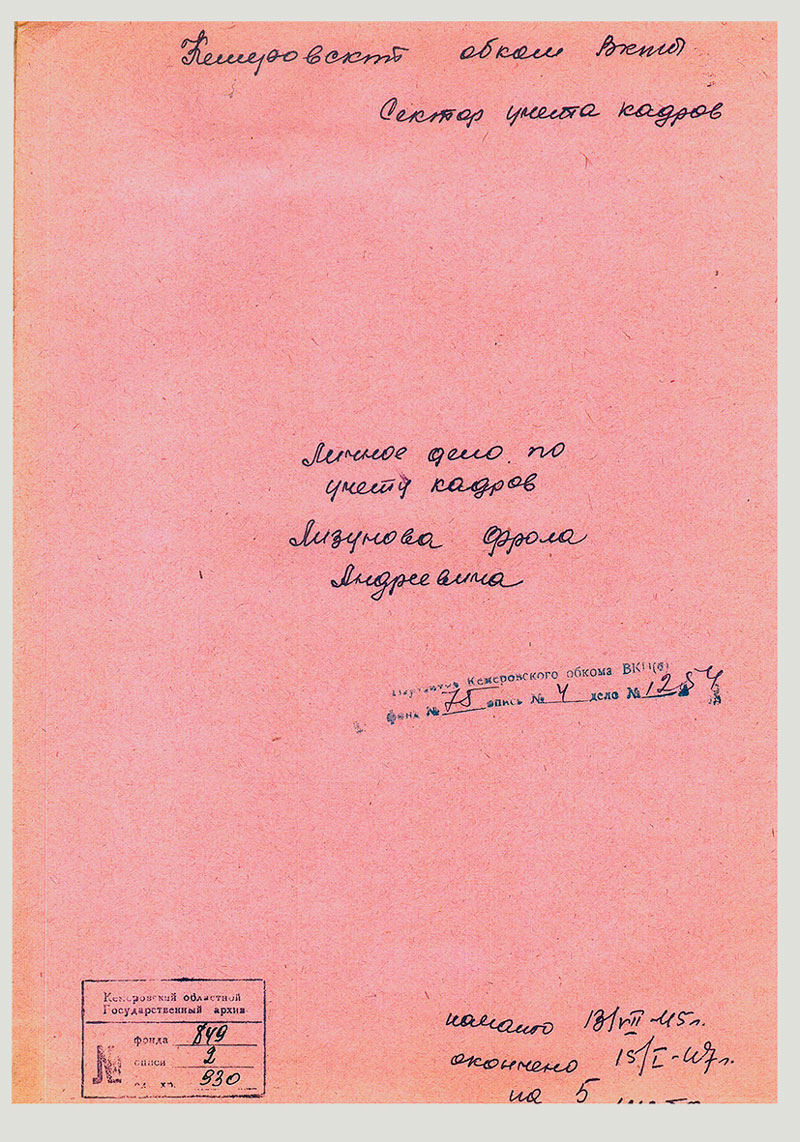 Кемеровский обком ВКП(б)
Сектор учета кадров
Личное дело по
учету кадров
Лизунова Фрола
Андреевича
Партархив Кемеровского обкома ВКП(б)
фонд № 75 опись № 4 дело № 1254
Кемеровский областной
Государственный архив
№
фонда 849
описи 2
ед. хр. 930
начато 13/VII-45г.
окончено 15/I-47г.
на 5